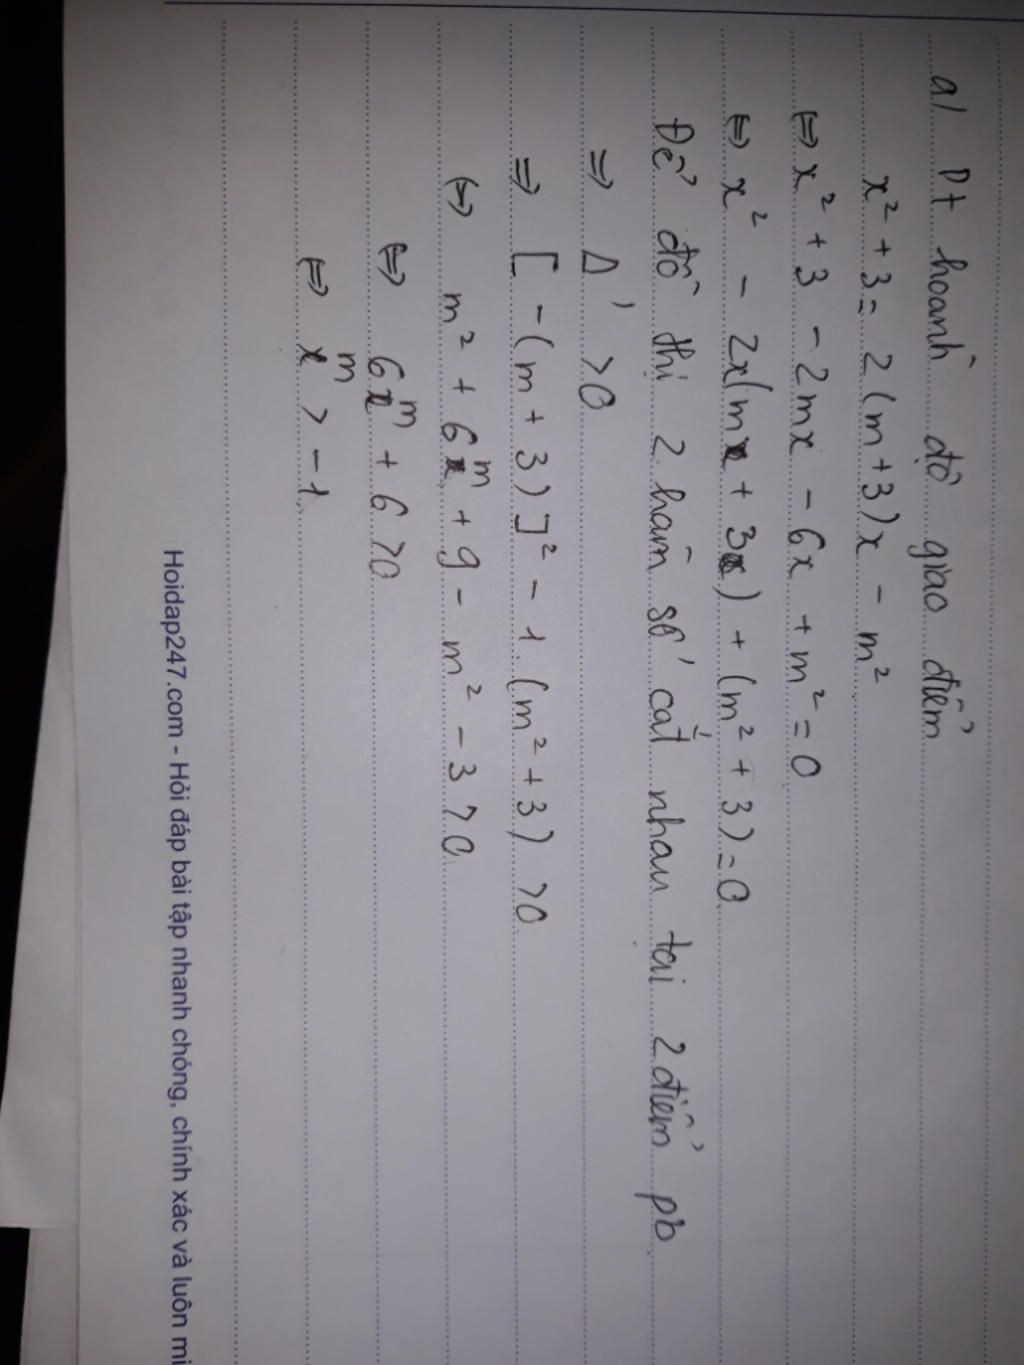 a/ Pt hoành độ giao điểm
x² + 3 = 2(m+3)x - m²
⇔ x² + 3 - 2mx - 6x + m² = 0
⇔ x² - 2x(m + 3) + (m² + 3) = 0
Để đồ thị 2 hàm số cắt nhau tại 2 điểm pb
⇒ Δ' > 0
⇒ [-(m + 3)]² - 1.(m² + 3) > 0
⇔ m² + 6m + 9 - m² - 3 > 0
⇔ 6m + 6 > 0
⇔ m > -1
Hoidap247.com - Hỏi đáp bài tập nhanh chóng, chính xác và luôn mi